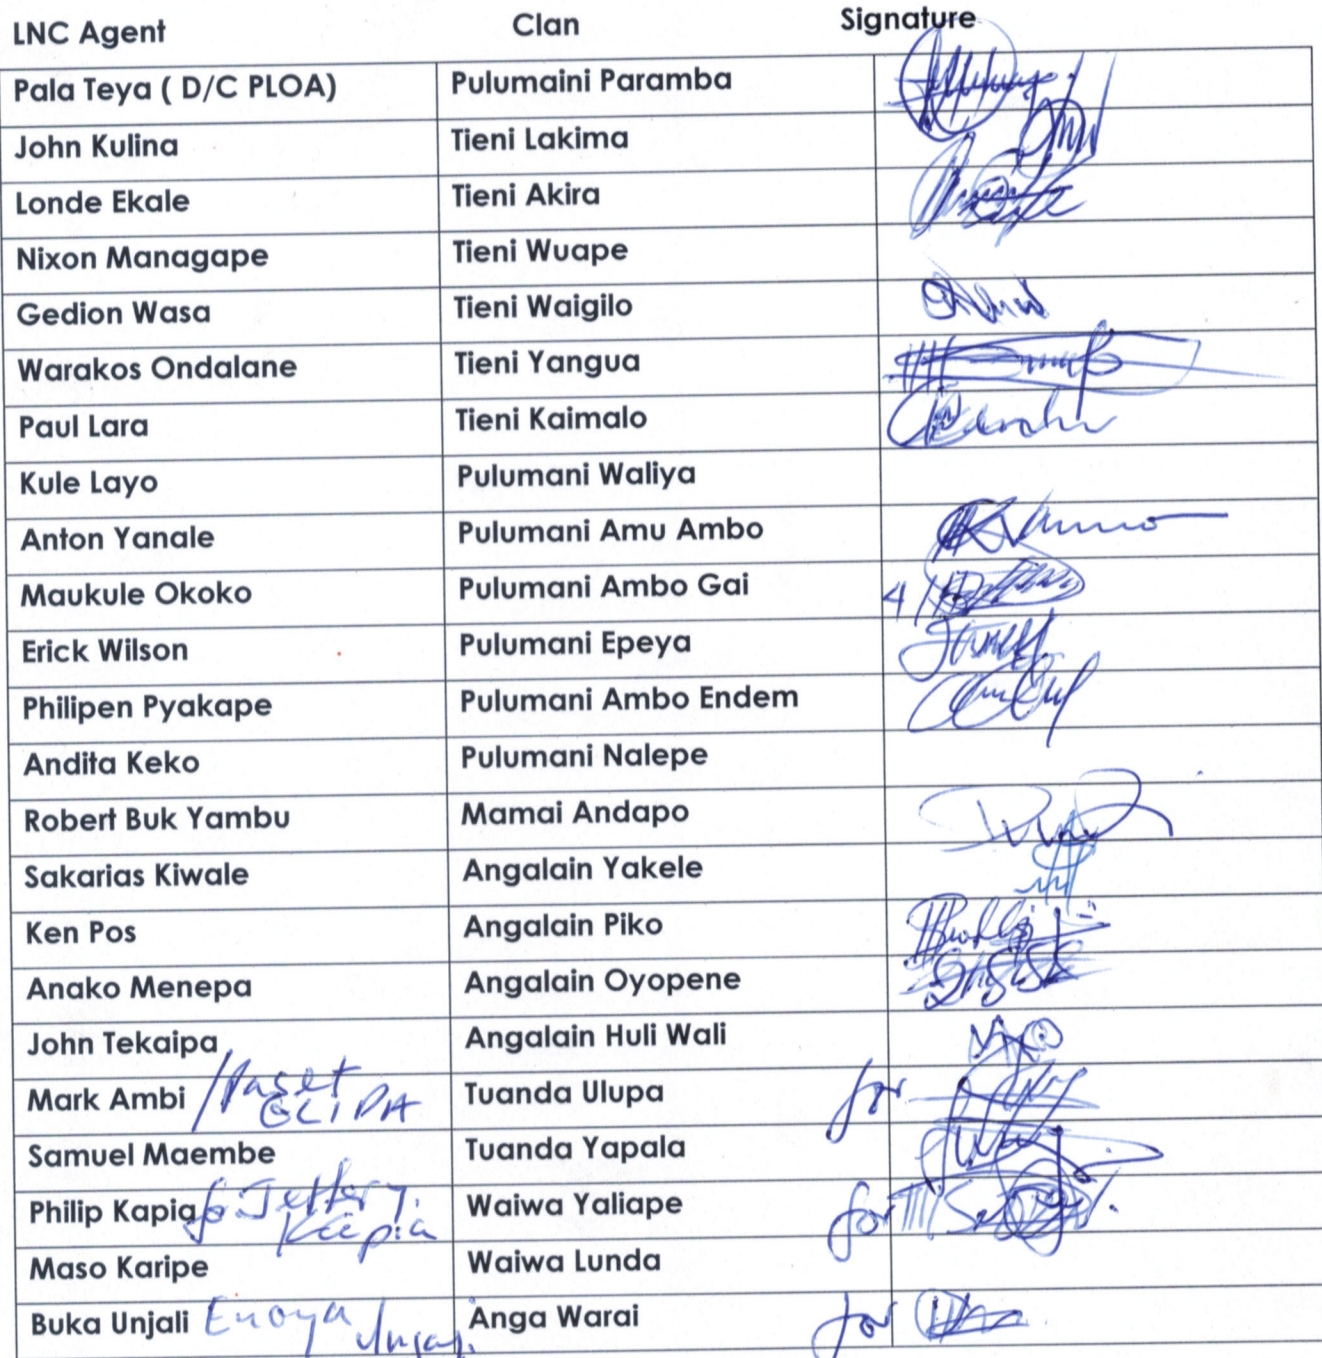 LNC Agent Clan Signature
Pala Teya ( D/C PLOA) Pulumaini Paramba
John Kulina Tieni Lakima
Londe Ekale Tieni Akira
Nixon Managape Tieni Wuape
Gedion Wasa Tieni Waigilo
Warakos Ondalane Tieni Yangua
Paul Lara Tieni Kaimalo
Kule Layo Pulumani Waliya
Anton Yanale Pulumani Amu Ambo
Maukule Okoko Pulumani Ambo Gai
Erick Wilson Pulumani Epeya
Philipen Pyakape Pulumani Ambo Endem
Andita Keko Pulumani Nalepe
Robert Buk Yambu Mamai Andapo
Sakarias Kiwale Angalain Yakele
Ken Pos Angalain Piko
Anako Menepa Angalain Oyopene
John Tekaipa Angalain Huli Wali
Mark Ambi Tuanda Ulupa for
Samuel Maembe Tuanda Yapala
Philip Kapia Kapia Waiwa Yaliape for
Maso Karipe Waiwa Lunda
Buka Unjali Anga Warai for